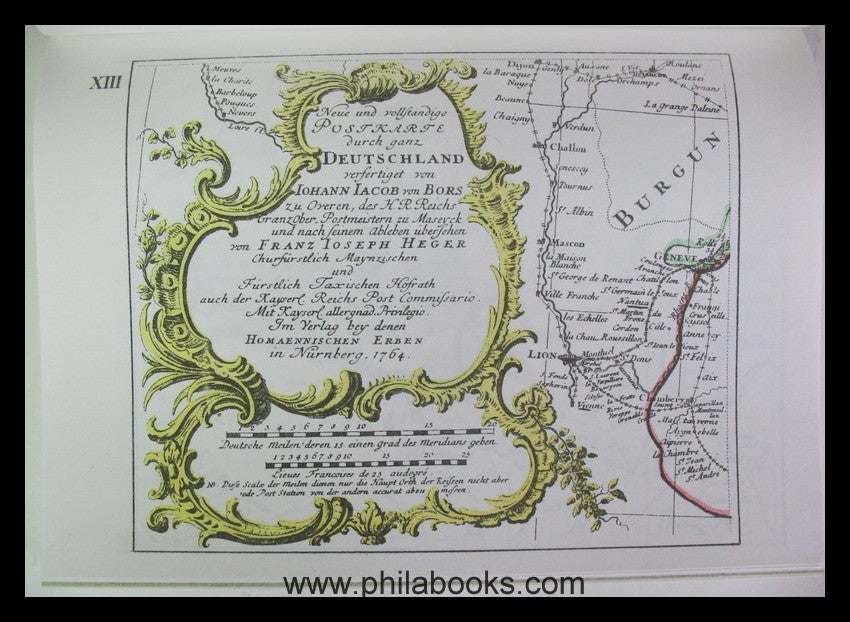 XIII
Neue und vollständige
POSTKARTE
durch ganz
DEUTSCHLAND
verfertiget von
IOHANN IACOB von BORS
zu Overen, des H. R. Reichs
Granz Ober Postmeistern zu Maseyck
und nach seinem Ableben übersehen
von FRANZ IOSEPH HEGER
Churfürstlich Maynzischen
und
Fürstlich Taxischen Hofrath
auch der Kayserl. Reichs Post Commissario.
Mit Kayserl. allergnäd. Privilegio.
Im Verlag bey denen
HOMAENNISCHEN ERBEN
in Nürnberg, 1764.
1 2 3 4 5 6 7 8 9 10 15 20
Deutsche Meilen deren 15 einen grad des Meridians geben.
1 2 3 4 5 6 7 8 9 10 15 20 25
Lieues Francoises de 25 audegré.
NB. Diese Scalae der Meilen dienen nur die Haupt Orth der Reisen nicht aber
iede Post Station von der andern accurat abzu messen.
Meuves
la Charite
Barbeloup
Pougues
Nevers
Loire fl.
Dijon
la Baraque
Nuys
Beaune
Chaigny
Genlis
Auxone
Dole
S. Vit
Orchamps
Roulans
Mezei
Ornans
La grange Daleine
Verdun
Challon
Senescey
Tournus
St. Albin
BURGUN
Mascon
la Maison
Blanche
St. George de Renant
Ville Franche
les Echelles
la Chau. Roussellon
LION
Montluel
Vienne
GENEVE
Chatillon
St. Germain le Joux
Nantua
St. Martin
Cordon
St. Jean le Vieux
Denis
Rolle
Chable
Annecy
St. Felix
Aix
Chambery
Montmeillan
Maltaverne
Ayguebelle
Epierre
la Chambre
St. Jean
St. Michel
St. André
www.philabooks.com